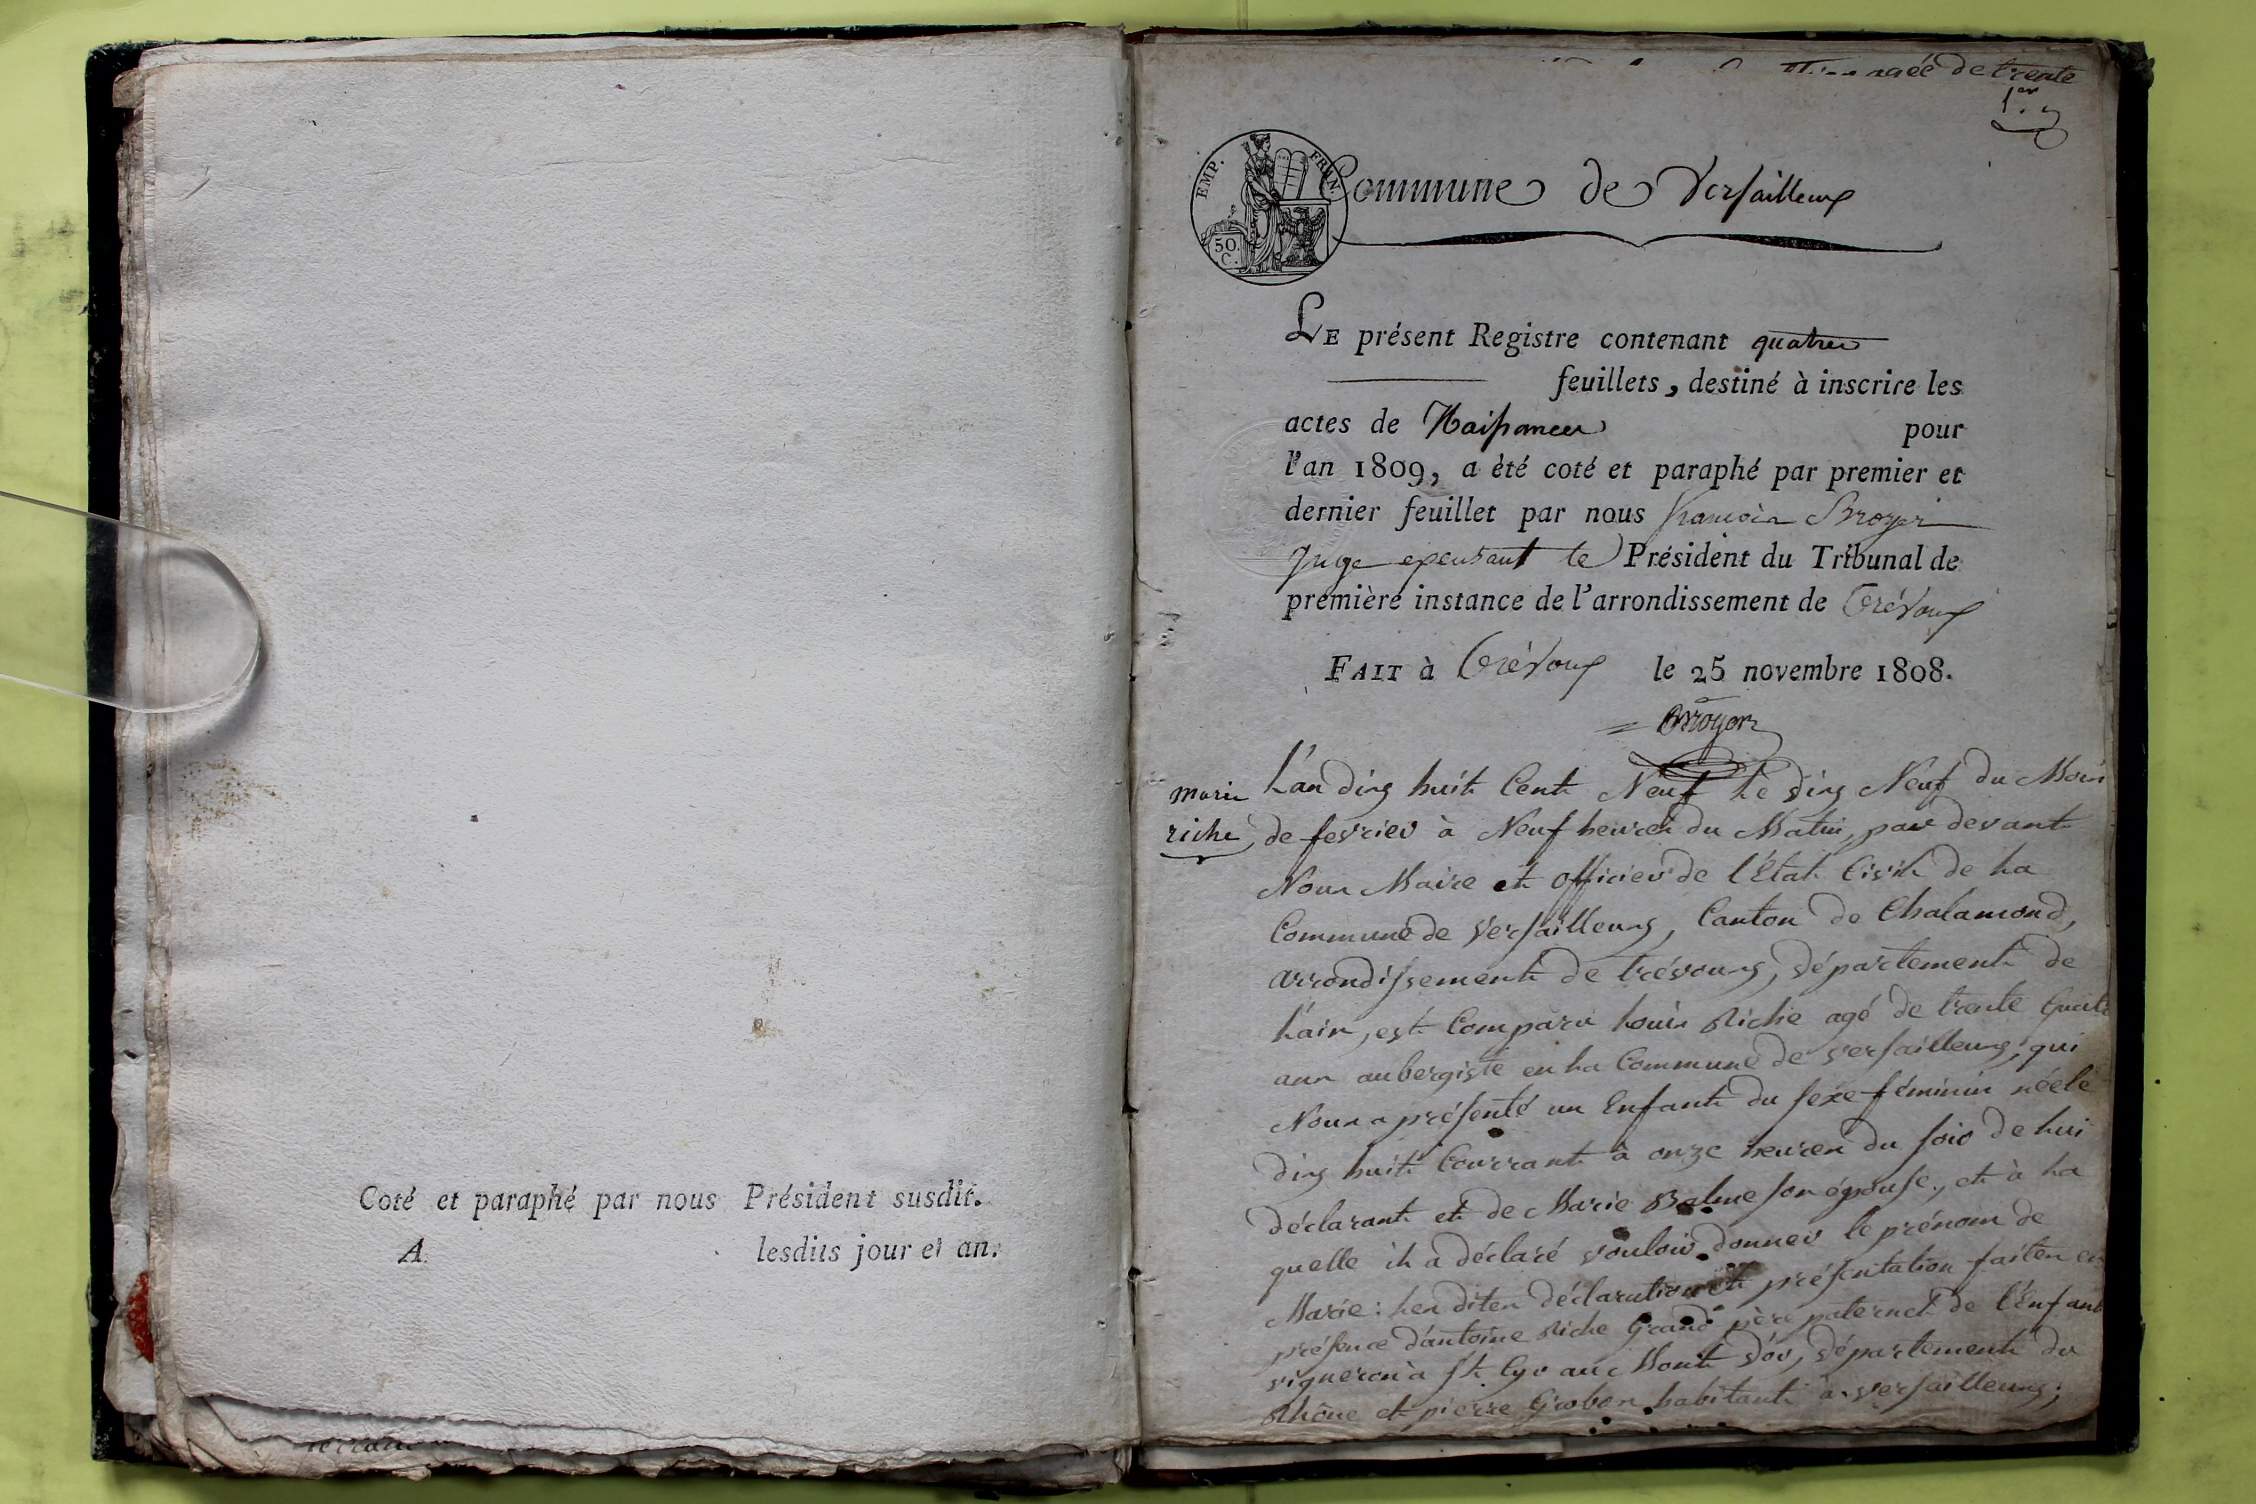 Coté et paraphé par nous Président susdit.
A lesdits jour et an.
agée de trente
1.er
EMP. FRAN.
50. C.
Commune de Versailleux
LE présent Registre contenant quatre
feuillets, destiné à inscrire les
actes de Naissances pour
l'an 1809, a été coté et paraphé par premier et
dernier feuillet par nous françois Broyer
Juge exerçant le Président du Tribunal de
première instance de l'arrondissement de Trévoux
FAIT à Trévoux le 25 novembre 1808.
Broyer
marie
riche
L'an dix huit Cent Neuf Le dix Neuf du Mois
de fevrier à Neuf heures du Matin, par devant
Nous Maire et officier de l'État Civil de La
Commune de Versailleux, Canton de Chalamond,
arrondissement de trévoux, département de
L'ain, est Comparu Louis Riche agé de trente Quatre
ans aubergiste en La Commune de Versailleux, qui
Nous a présenté un Enfant du sexe féminin née le
dix huit Courrant à onze heures du soir de Lui
déclarant et de Marie Balme son épouse, et à La
quelle il a déclaré vouloir donner le prénom de
Marie: Les dites déclaration et présentation faites en
présence d'antoine Riche Grand père paternel de L'Enfant
vigneron à St. Cyr au Mont d'or, département du
Rhône et pierre Grobon habitant à Versailleux;